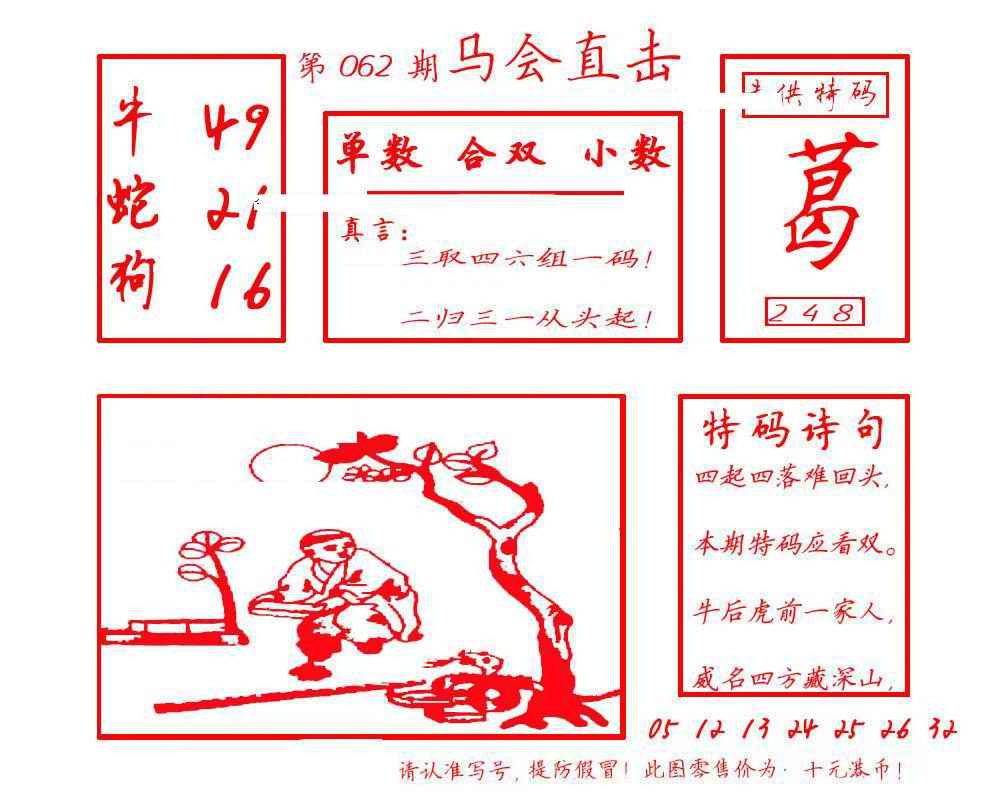 第 062 期 马会直击
牛 49
蛇 21
狗 16
单数 合双 小数
真言：
三取四六组一码！
二归三一从头起！
供特码
葛
248
特码诗句
四起四落难回头，
本期特码应看双。
牛后虎前一家人，
威名四方藏深山，
05 12 13 24 25 26 32
请认准写号，提防假冒！此图零售价为·十元港币！